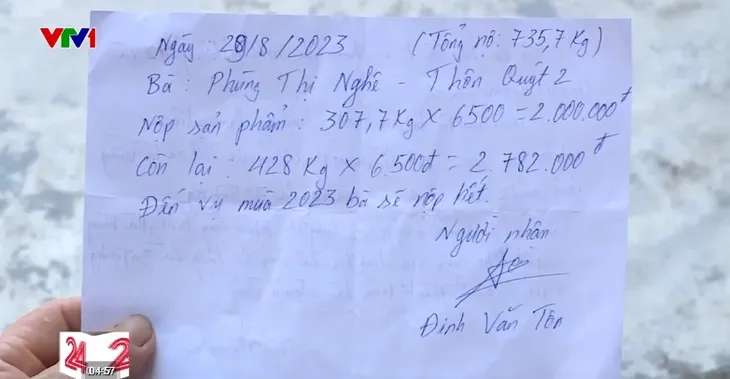 VTV1
Ngày: 28/8/2023 (Tổng nợ: 735,7 Kg)
Bà: Phùng Thị Nghê - Thôn Quýt 2
Nộp sản phẩm: 307,7 Kg X 6500 = 2.000.000đ
Còn lại: 428 Kg X 6.500đ = 2.782.000đ
Đến vụ mùa 2023 bà sẽ nộp hết.
Người nhận
Đinh Văn Tôn
24 2
04:57